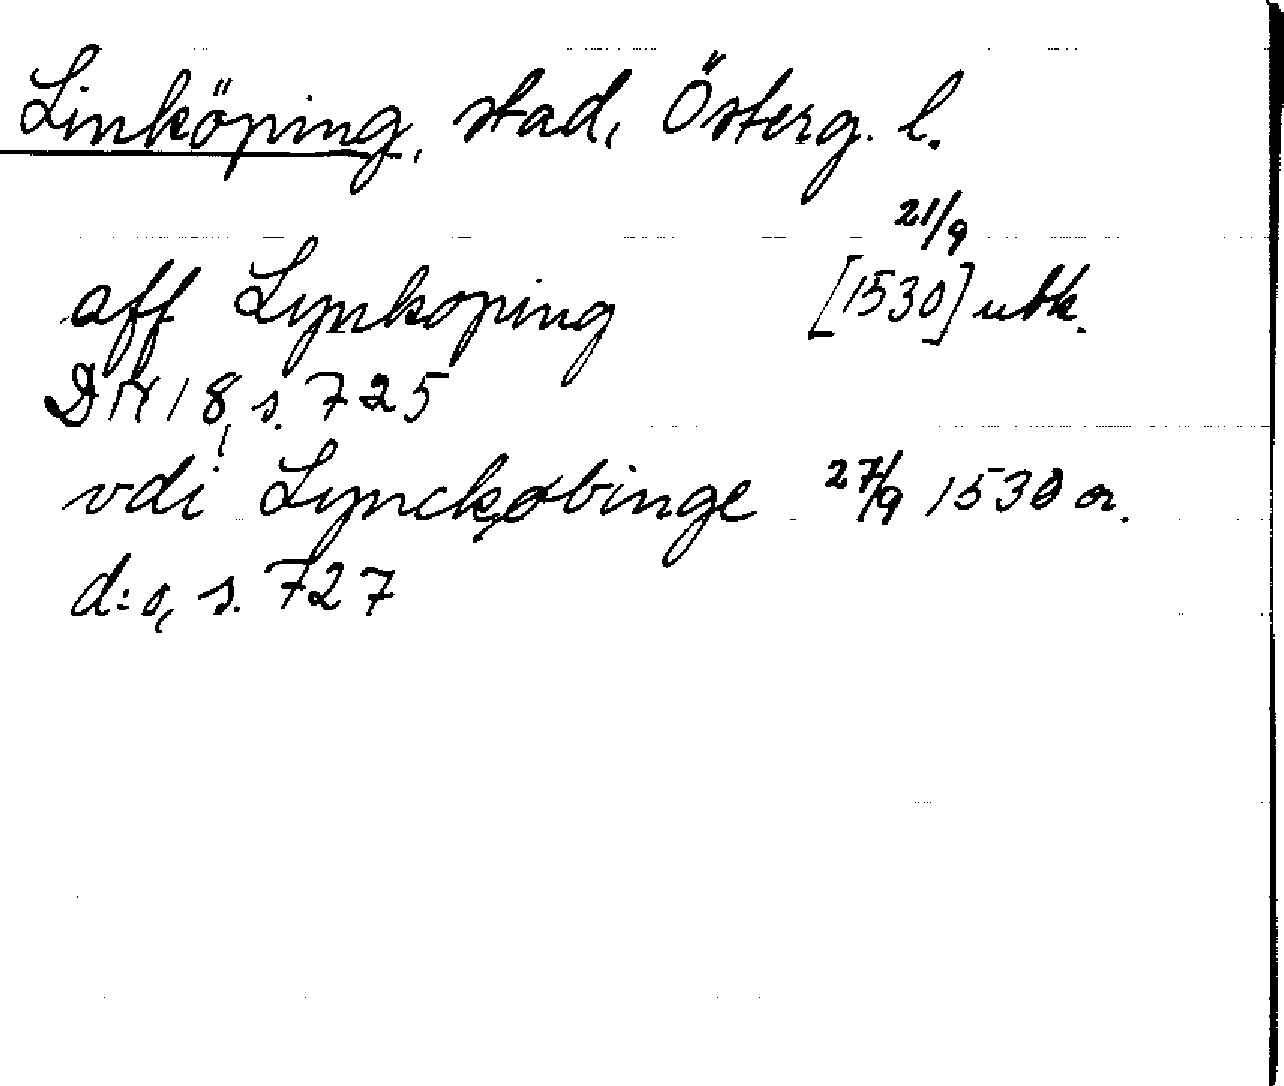 Linköping, stad, Österg. l.
aff Lynkoping [1530] 21/9 utk.
DN 18, s. 725
vdi Lynckøbinge 27/9 1530 or.
d:o, s. 727